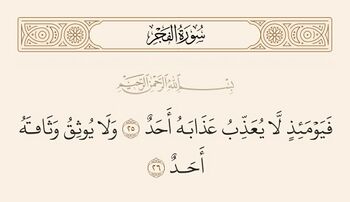 سُورَةُ الفَجْرِ
بِسْمِ اللَّهِ الرَّحْمَٰنِ الرَّحِيمِ
فَيَوْمَئِذٍ لَّا يُعَذِّبُ عَذَابَهُ أَحَدٌ ٢٥ وَلَا يُوثِقُ وَثَاقَهُ
أَحَدٌ ٢٦